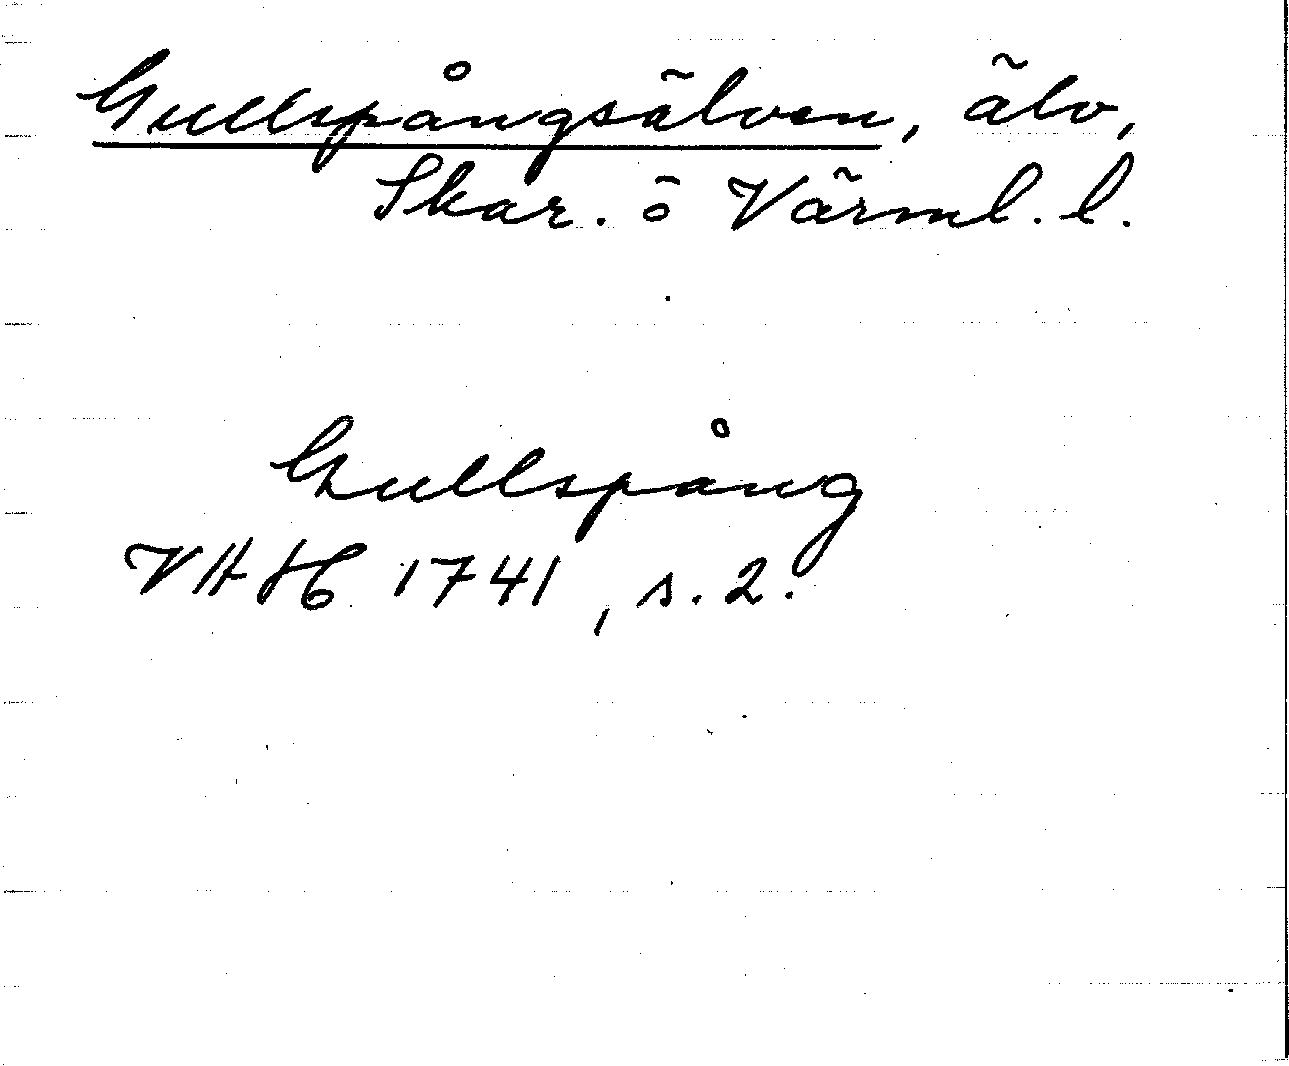 Gullspångsälven, älv,
Skar. o Värml. l.
Gullspång
VHH 1741, s. 2.